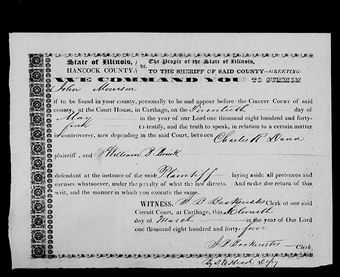 State of Illinois,
HANCOCK COUNTY.
The People of the State of Illinois,
TO THE SHERIFF OF SAID COUNTY—GREETING:
WE COMMAND YOU TO SUMMON
John Morrison
if to be found in your county, personally to be and appear before the Circuit Court of said
county, at the Court House, in Carthage, on the Twentieth day of
May in the year of our Lord one thousand eight hundred and forty-
five to testify, and the truth to speak, in relation to a certain matter
in controversy, now depending in the said Court, between Charles R Dana
plaintiff, and William B
defendant at the instance of the said Plaintiff laying aside all pretences and
excuses whatsoever, under the penalty of what the law directs. And make due return of this
writ, and the manner in which you execute the same.
WITNESS, Clerk of our
Circuit Court, at Carthage, this day of
March in the year of Our Lord
one thousand eight hundred and forty-five
Clerk,